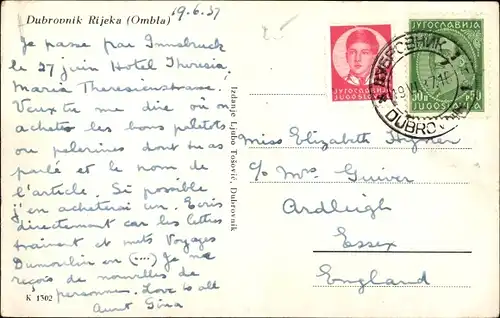 Dubrovnik Rijeka (Ombla)
19.6.37
Je passe par Innsbruck
le 27 juin Hotel Theresia,
Maria Theresienstrasse.
Veux tu me dire où on
achète les bons paletots
ou pelerines dont tu as
parlé et le nom de
l'article. Si possible
j'en acheterai un. Ecris
directement car les lettres
trainent et mets Voyages
Dumoulin en (....) Je me
reçois de nouvelles de
personne. Love to all
Aunt Gina
K 1302
Izdanje Ljubo Tošović, Dubrovnik
ЈУГОСЛАВИЈА
JUGOSLAVIJA
ДУБРОВНИК
DUBROVNIK
Miss Elizabeth
c/o Mrs Guiver
Ardleigh
Essex
England